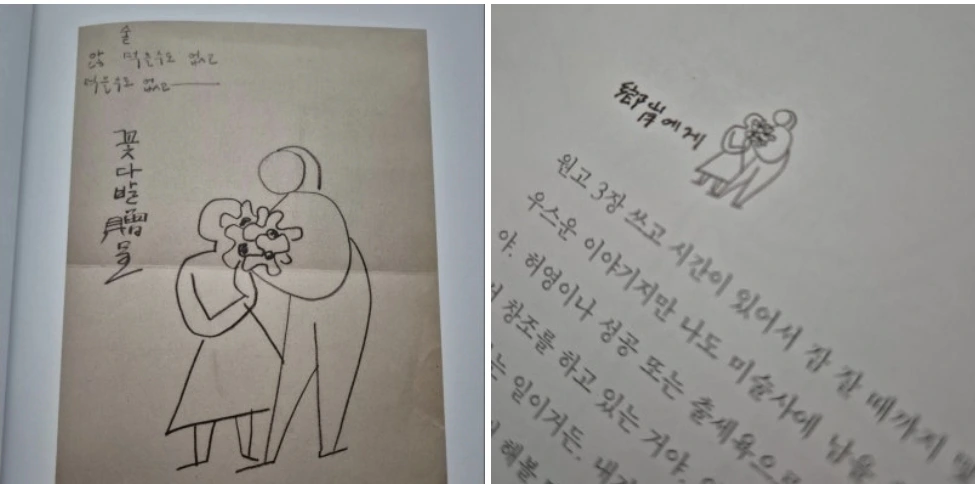 술
않 먹을수도 없고
먹을수도 없고―
꽃다발贈
鄕岸에게
원고 3장 쓰고 시간이 있어서 잠 잘 때까지
우스운 이야기지만 나도 미술사에 남을
야. 허영이나 성공 또는 출세욕으로
창조를 하고 있는 거야.
는 일이거든. 내가
해볼